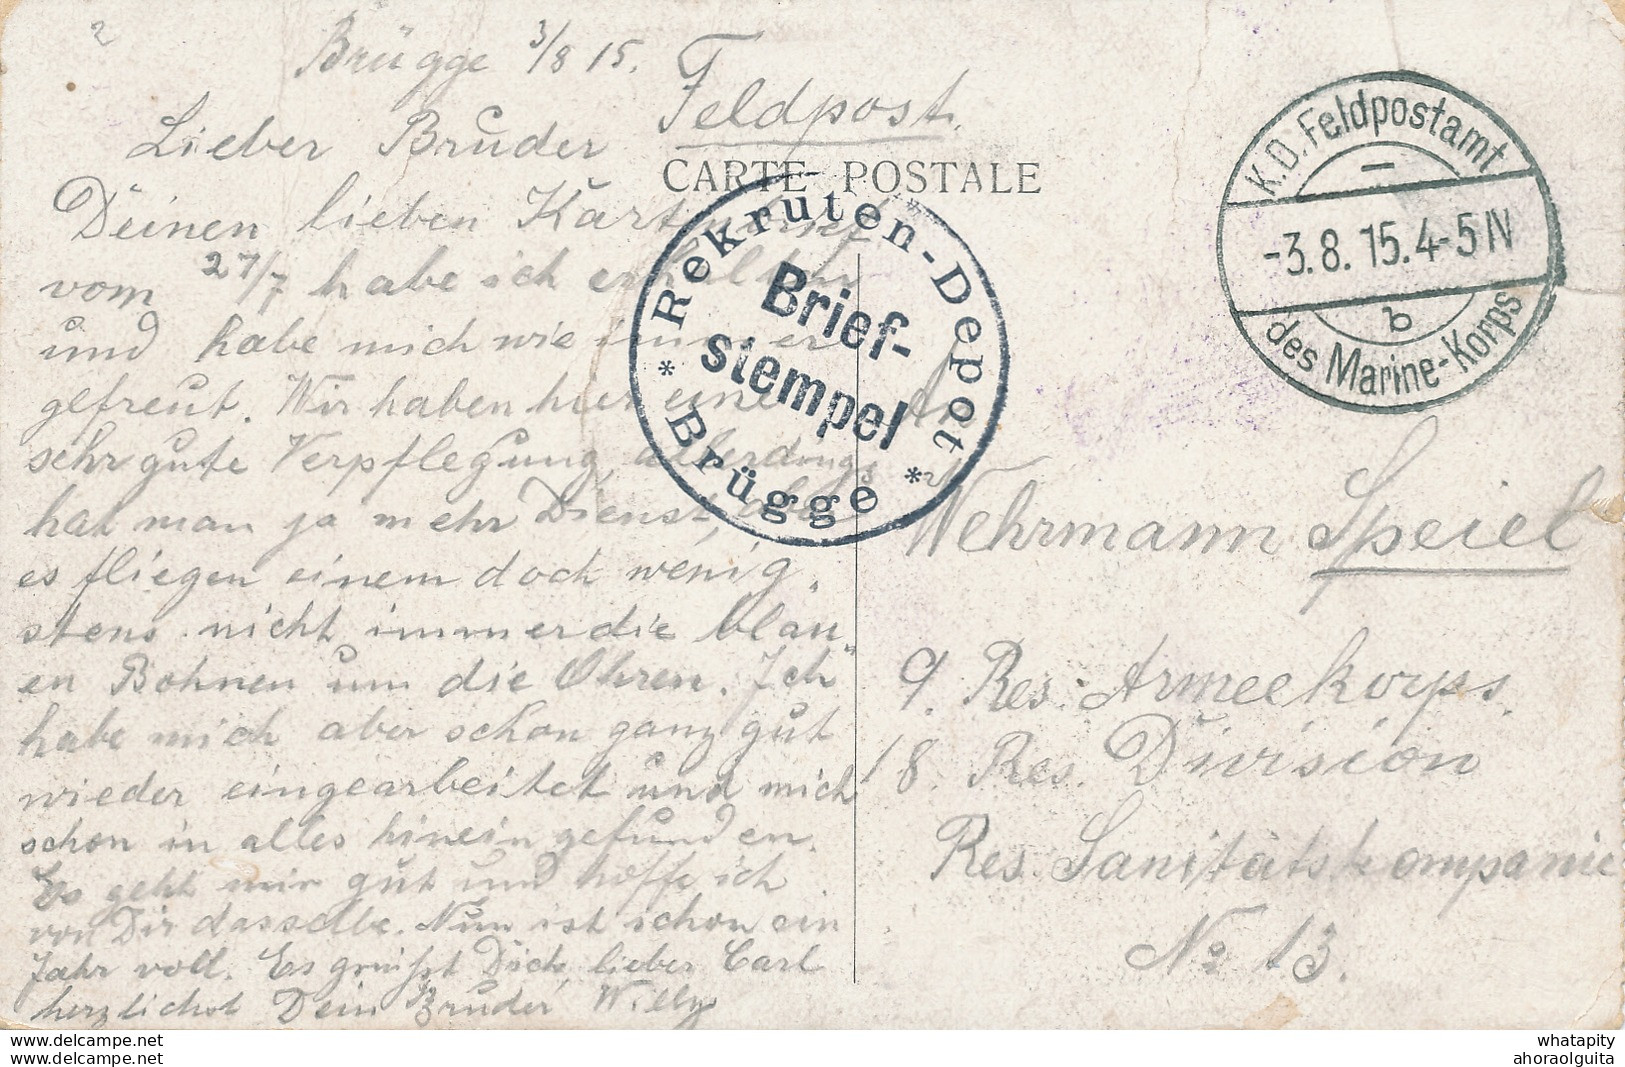 2
Brügge 3/8 15.
Feldpost.
CARTE POSTALE
Lieber Bruder
Deinen lieben Kartenbrief
vom 27/7 habe ich erhalten
und habe mich wie immer
gefreut. Wir haben hier eine
sehr gute Verpflegung, allerdings
hat man ja mehr Dienst, aber
es fliegen einem doch wenig„
stens nicht immer die blau„
en Bohnen um die Ohren. Ich
habe mich aber schon ganz gut
wieder eingearbeitet und mich
schon in alles hinein gefunden.
Es geht mir gut und hoffe ich
von Dir dasselbe. Nun ist schon ein
Jahr voll. Es grüsst Dich, lieber Carl
herzlichst Dein Bruder Willy
Rekruten-Depot
Brief-
stempel
* Brügge *
K.D. Feldpostamt
-3.8.15.4-5N
b
des Marine-Korps
Wehrmann Speiel
9. Res. Armeekorps.
18. Res. Division
Res. Sanitätskompanie
No 13.
whatapity
ahoraolguita
www.delcampe.net
www.delcampe.net